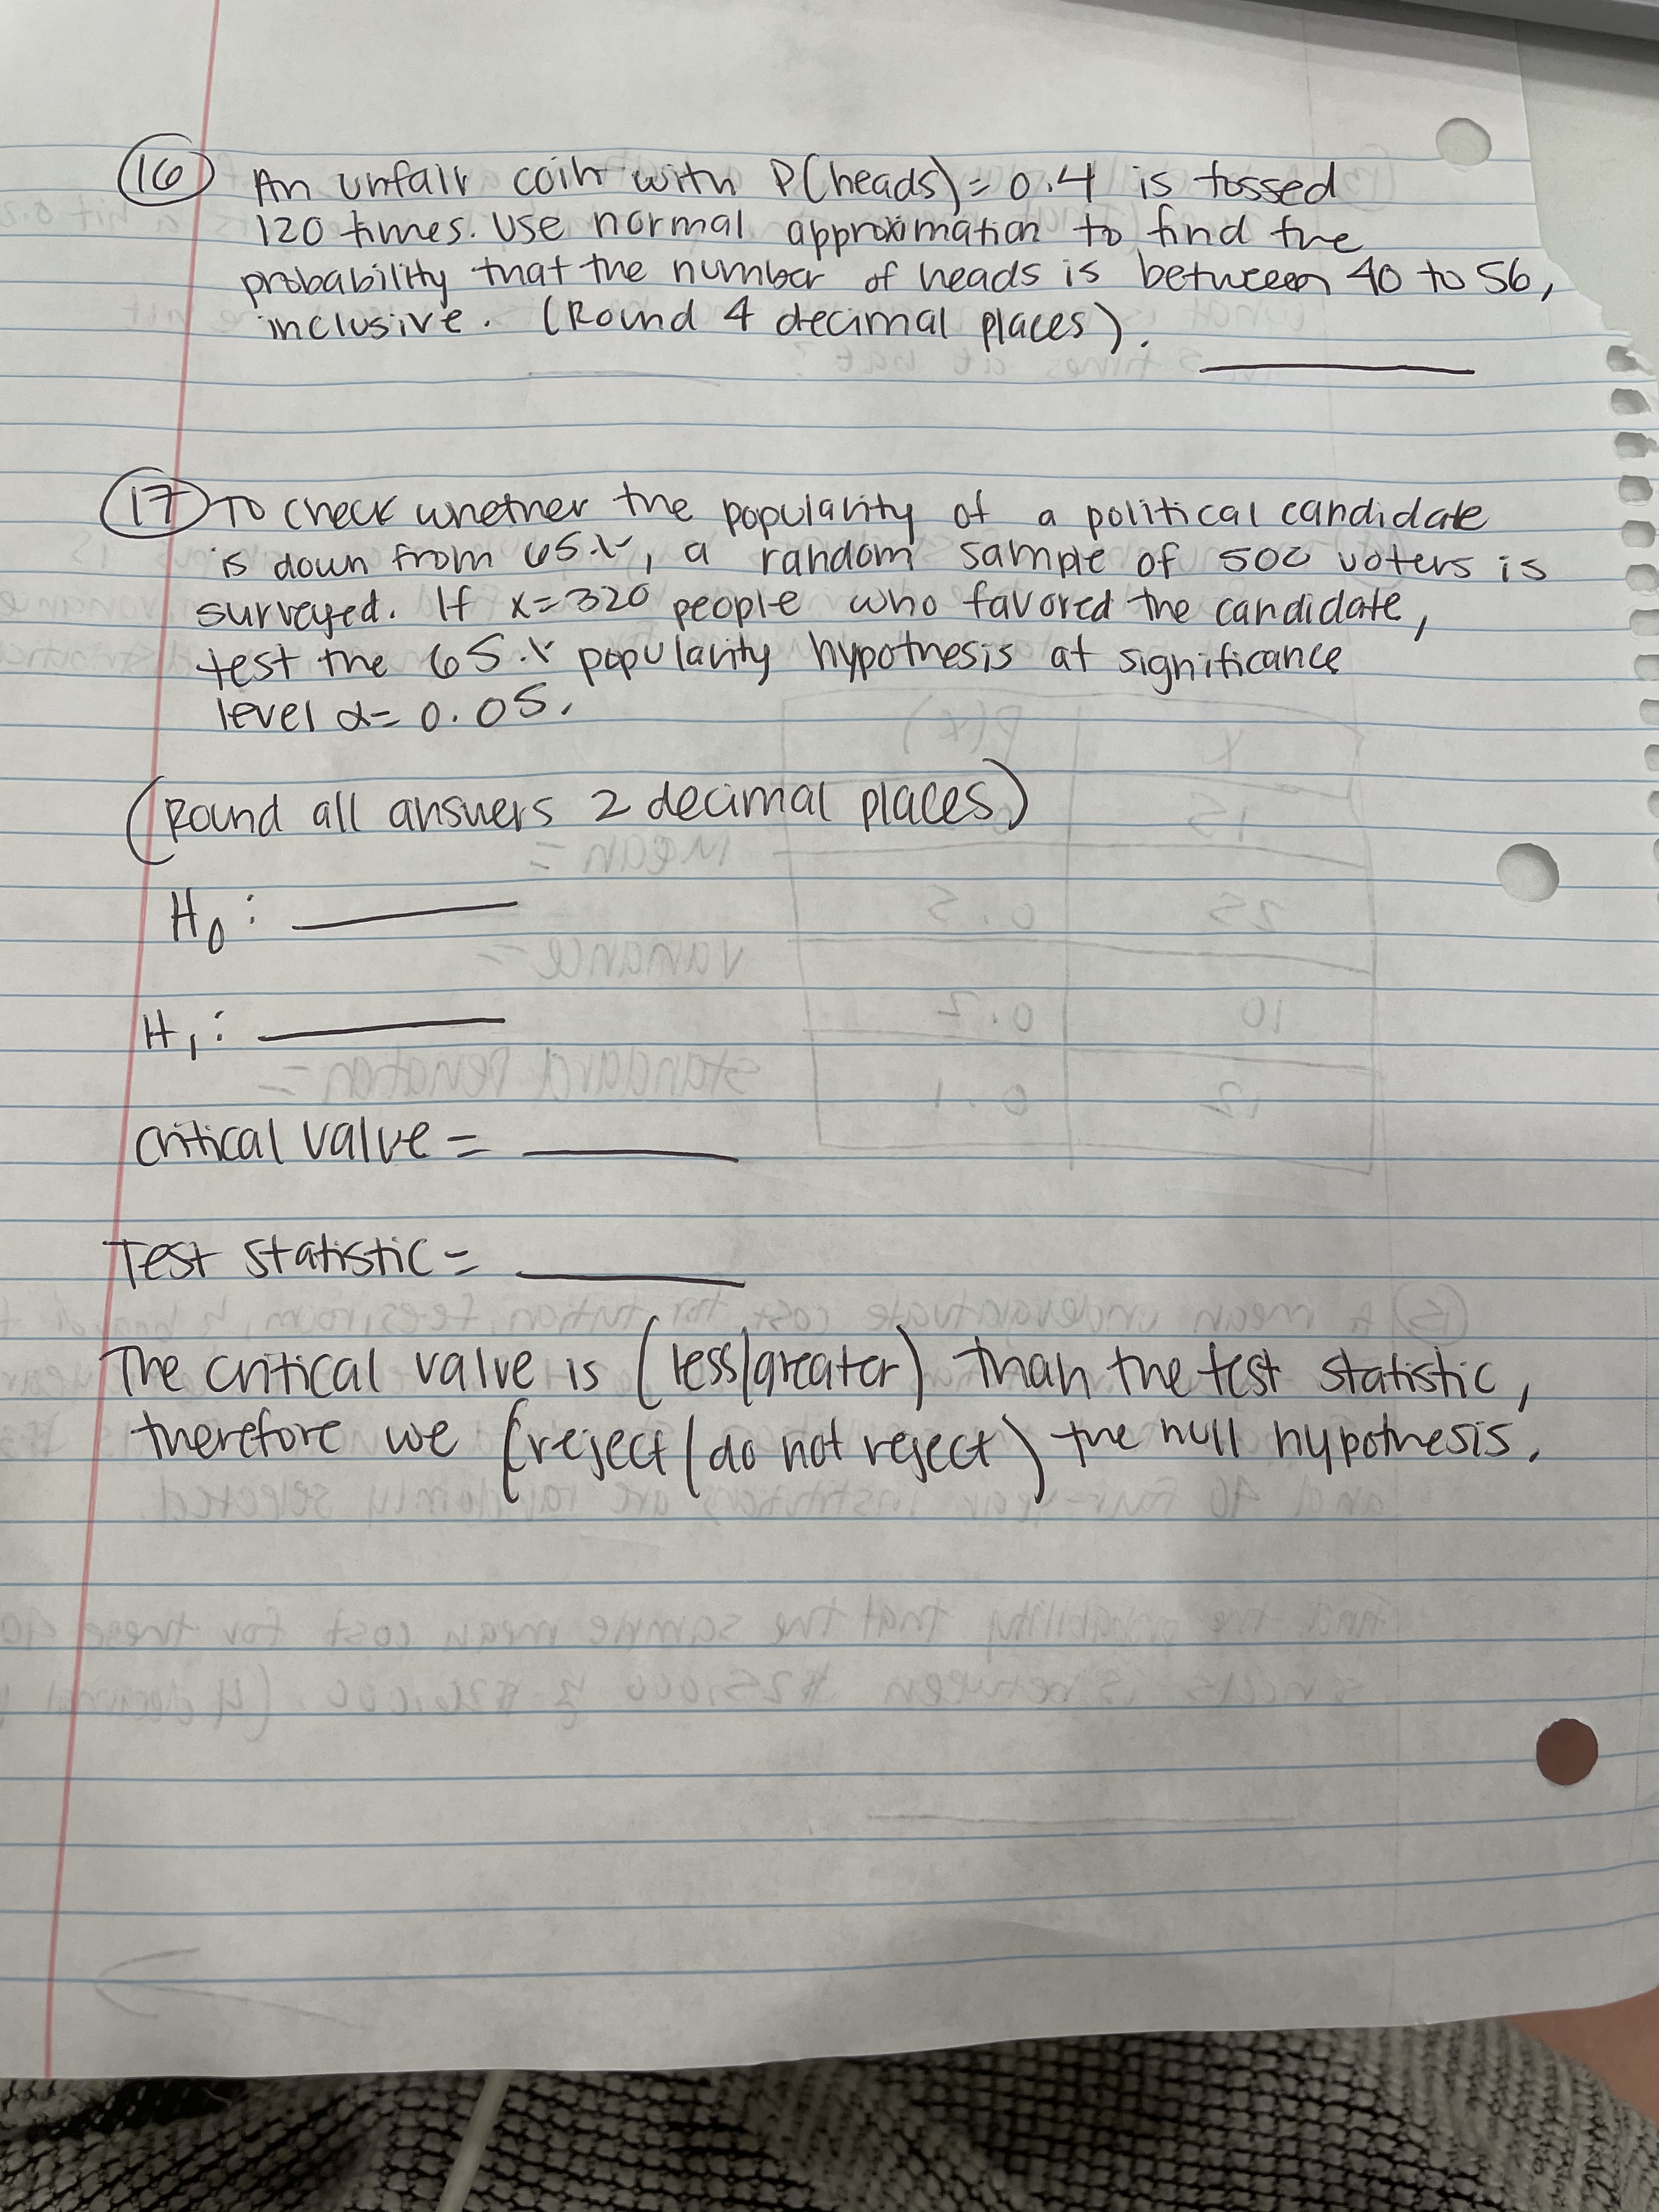 16 An unfair coin with P(heads)=0.4 is tossed
120 times. Use normal approximation to find the
probability that the number of heads is between 40 to 56,
inclusive. (Round 4 decimal places).
17 To check whether the popularity of a political candidate
is down from 65%, a random sample of 500 voters is
surveyed. If x=320 people who favored the candidate,
test the 65% popularity hypothesis at significance
level α=0.05.
(Round all answers 2 decimal places)
H0:
H1:
critical value =
Test statistic =
The critical value is (less/greater) than the test statistic,
therefore we (reject/do not reject) the null hypothesis.